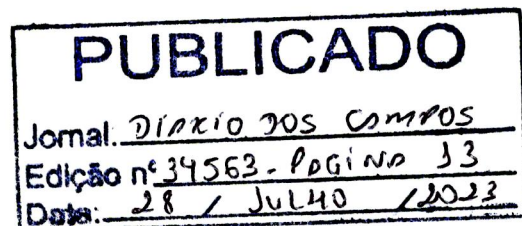 PUBLICADO
Jornal: DIARIO DOS CAMPOS
Edição nº 34563 - PAGINA 13
Data: 28 / JULHO / 2023